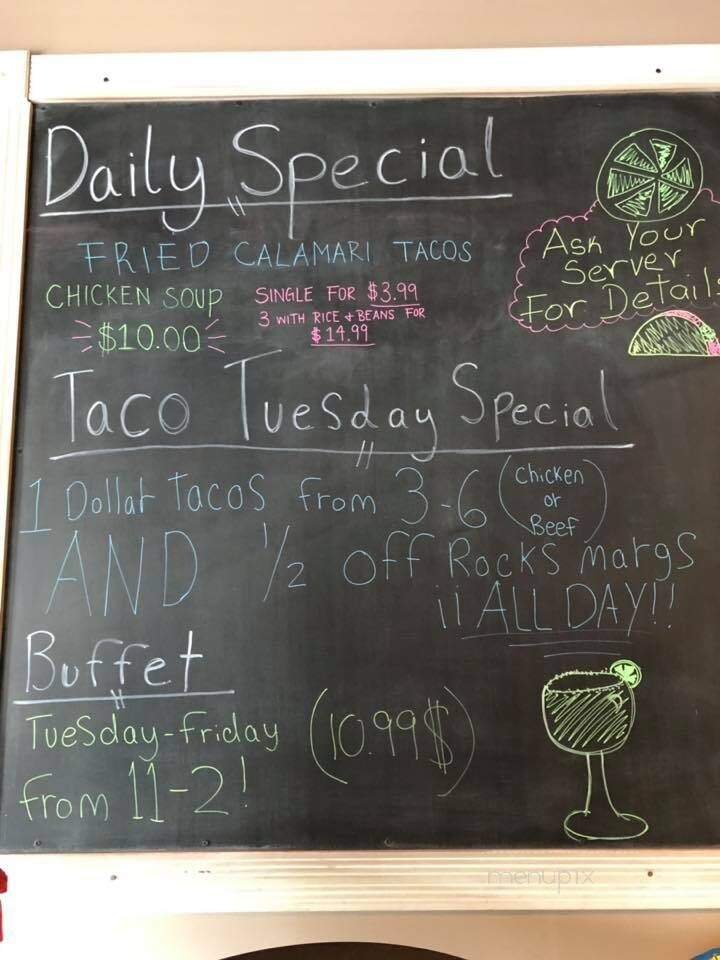 Daily Special
FRIED CALAMARI TACOS
CHICKEN SOUP
$10.00
SINGLE FOR $3.99
3 WITH RICE & BEANS FOR
$14.99
Ask Your
Server
For Details
Taco Tuesday Special
1 Dollar Tacos from 3-6 (Chicken
or
Beef)
AND 1/2 off Rocks margs
¡¡ ALL DAY!!
Buffet
Tuesday-friday (10.99$)
from 11-2!
menupix